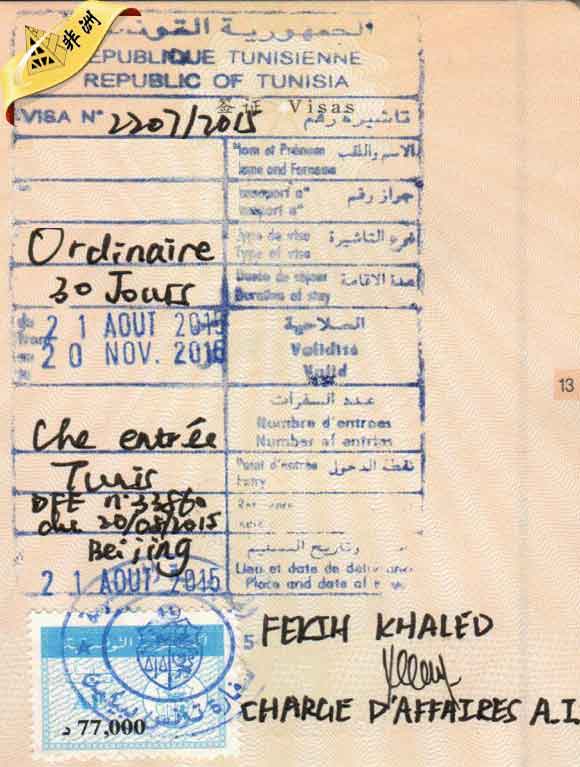 非洲
الجمهورية التونسية
REPUBLIQUE TUNISIENNE
REPUBLIC OF TUNISIA
签证 Visas
VISA N° 2207/2015 تاشيرة رقم
Nom et Prénom الاسم واللقب
Name and Forname
جواز رقم
Ordinaire Type de visa نوع التاشيرة
Type of visa
30 Jours Durée de séjour مدة الاقامة
Duration of stay
21 AOUT 2015 الصلاحية
20 NOV. 2015 Validité
Valid
عدد السفرات
Une entrée Nombre d'entrées
Number of entries
Tunis Point d'entrée نقطة الدخول
Entry
DFE n°33560
du 20/08/2015
Beijing وتاريخ التسليم
21 AOUT 2015 Lieu et date de
Place and date of
5
77,000 د
FEKIH KHALED
CHARGE D'AFFAIRES A.I.
13